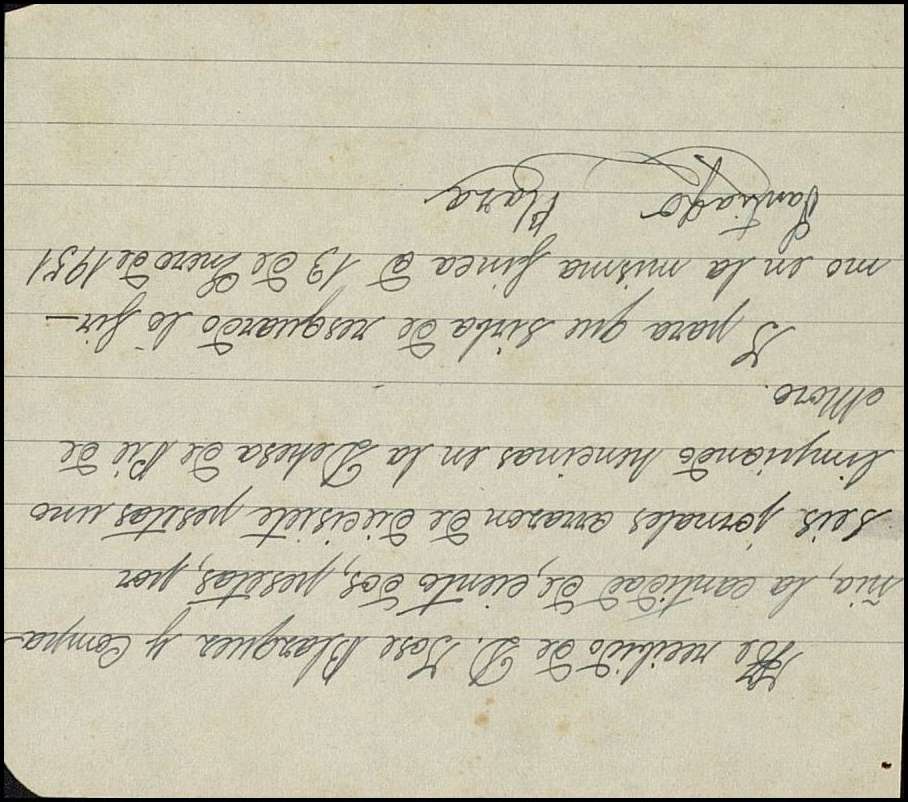 He recibido de D. Jose Blazquez y Compa
ñia, la cantidad de, ciento dos, pesetas, por
seis jornales arrazon de diecisiete pesetas uno
limpiando hencinas en la Dehesa de Pie de
Moro.
Y para que sirba de resguardo lo fir-
mo en la misma finca a 13 de Enero de 1951
Santiago Plaza